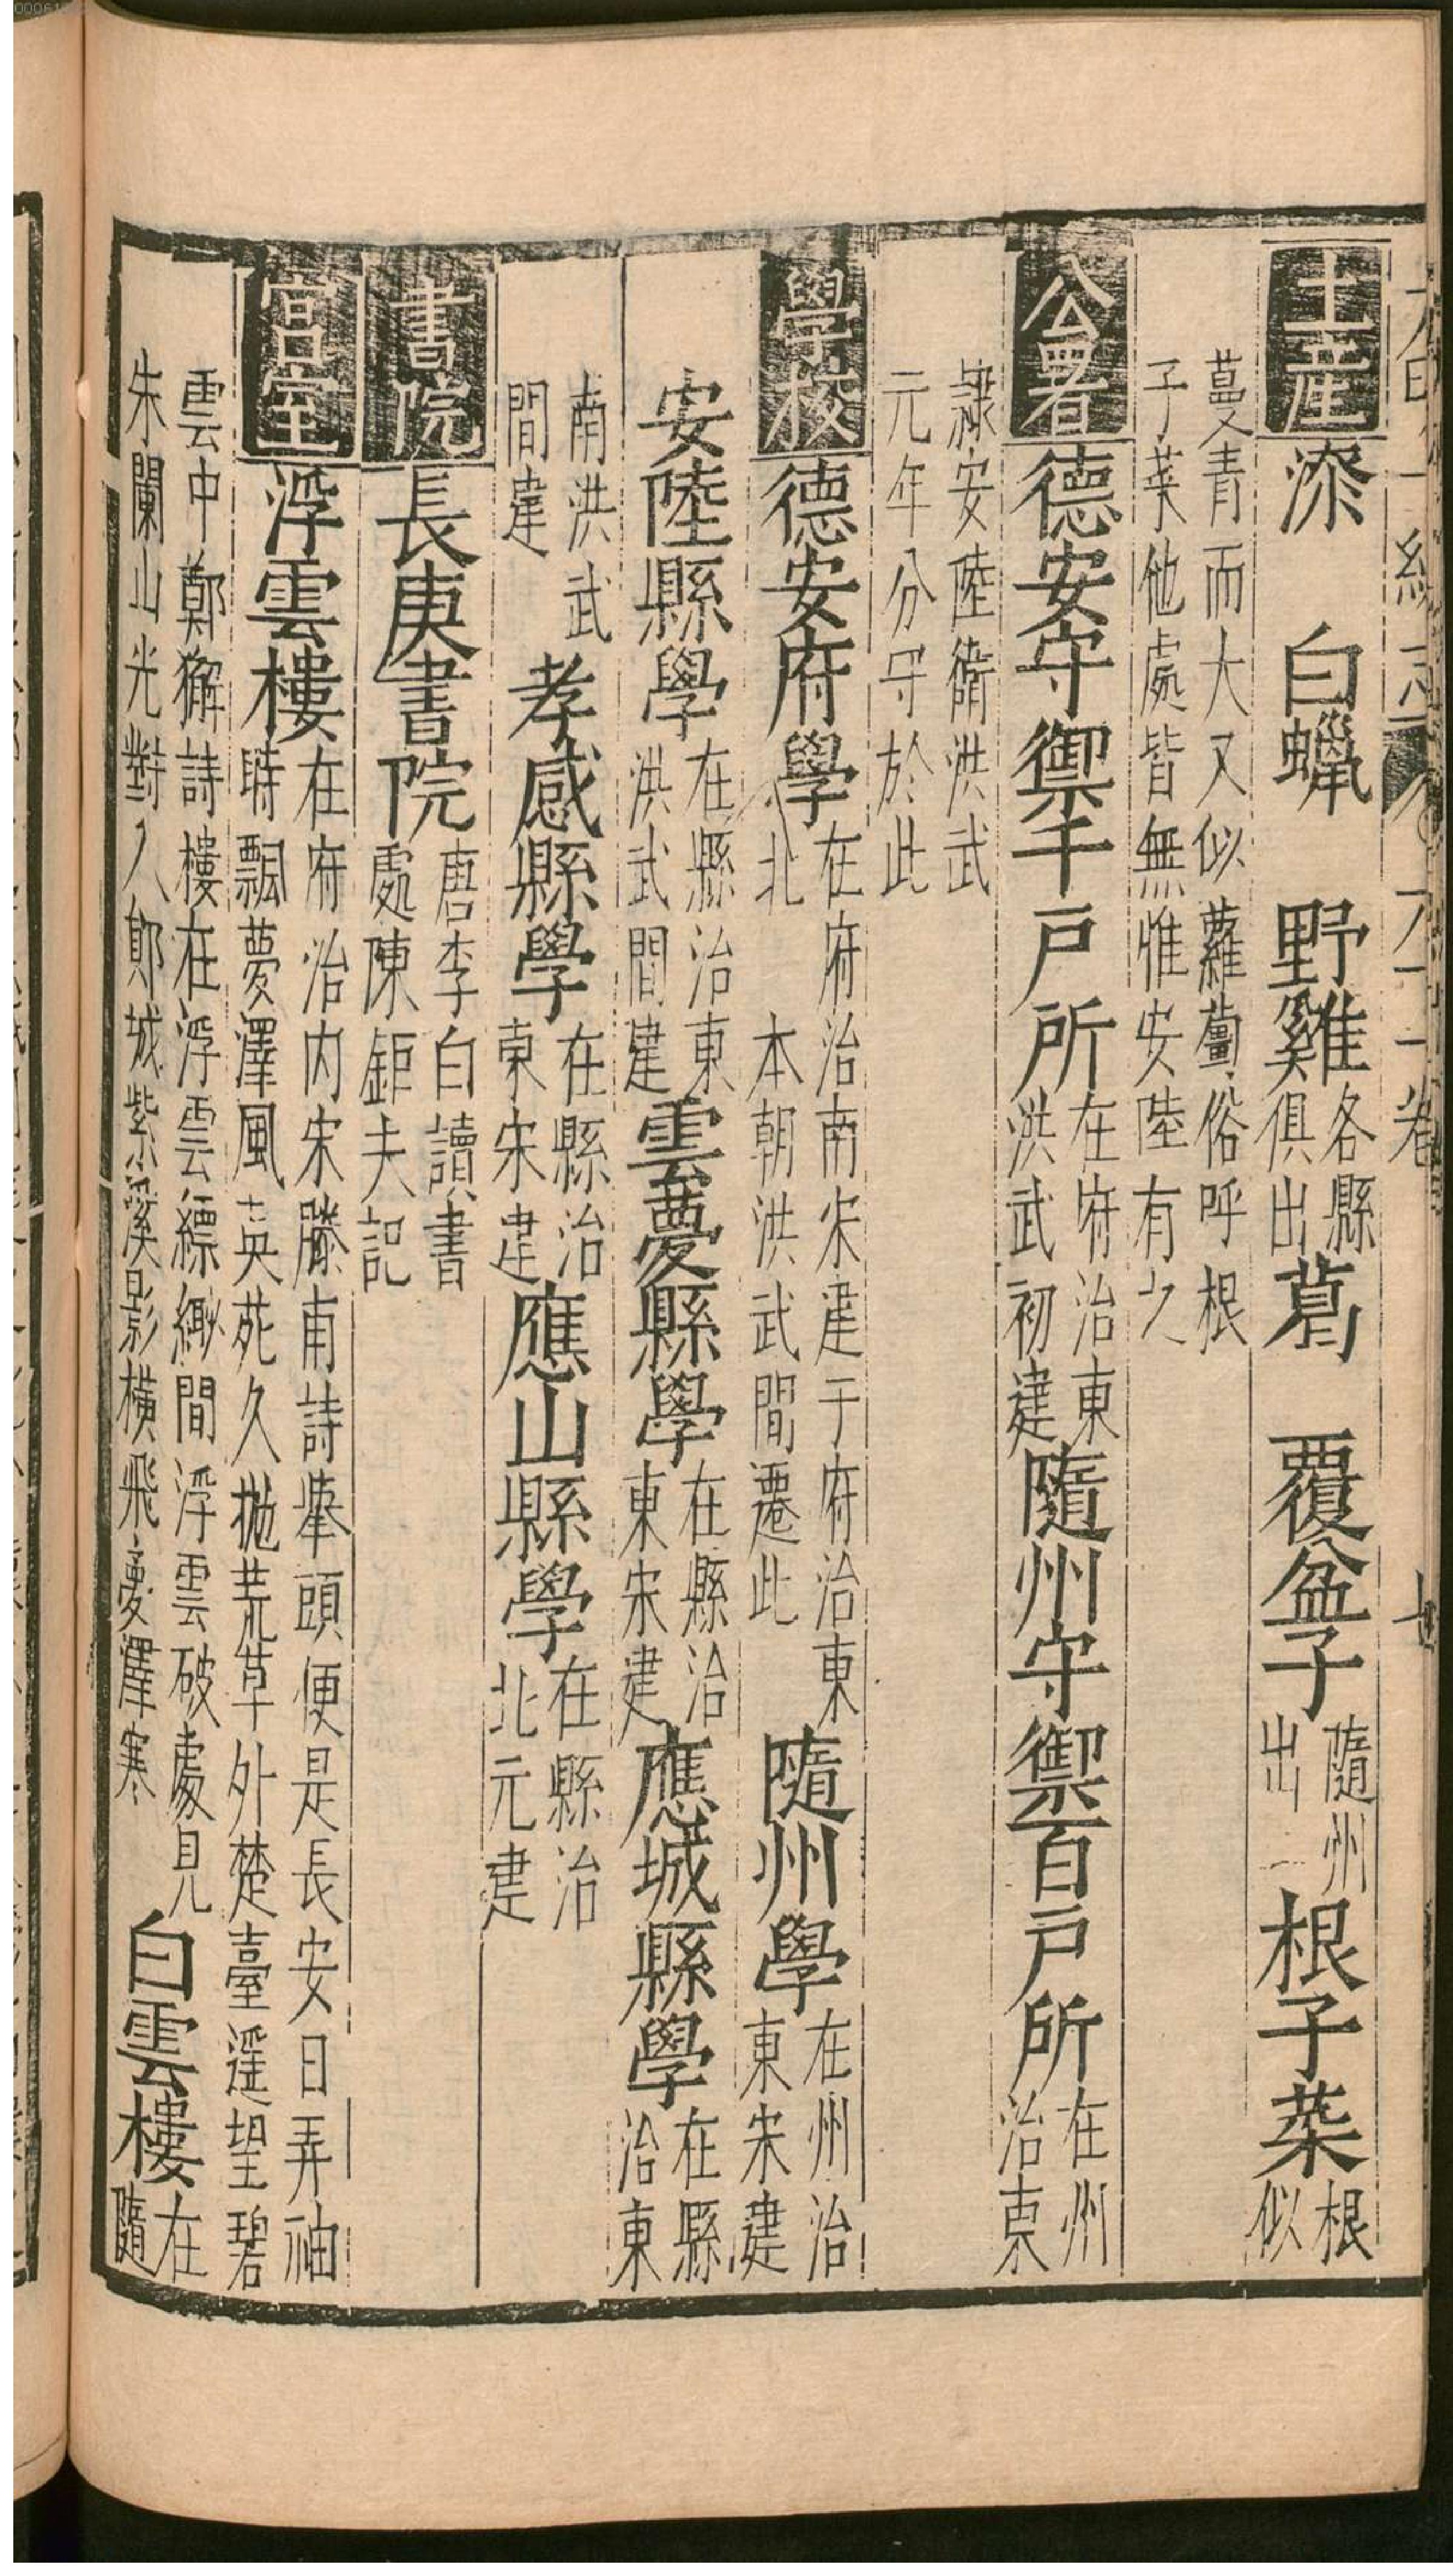 土產漆　白蠟　野雞各縣俱出葛　覆盆子隨州出根子菜根似
蔓青而大又似蘿蔔俗呼根子菜他處皆無惟安陸有之
公署德安守禦千戶所在府治東洪武初建隨州守禦百戶所在州治東
隸安陸衛洪武元年分守於此
學校德安府學在府治南宋建于府治東北　本朝洪武間遷此　隨州學在州治東宋建
安陸縣學在縣治東洪武間建雲夢縣學在縣治東宋建應城縣學在縣治東
南洪武間建　孝感縣學在縣治東宋建應山縣學在縣治北元建
書院長庚書院唐李白讀書處陳鉅夫記
宮室浮雲樓在府治內宋滕甫詩舉頭便是長安日弄袖時飄夢澤風英苑久拋荒草外楚臺遥望碧
雲中鄭獬詩樓在浮雲縹緲間浮雲破處見朱闌山光對入鄖城紫溪影橫飛夢澤寒　白雲樓在隨